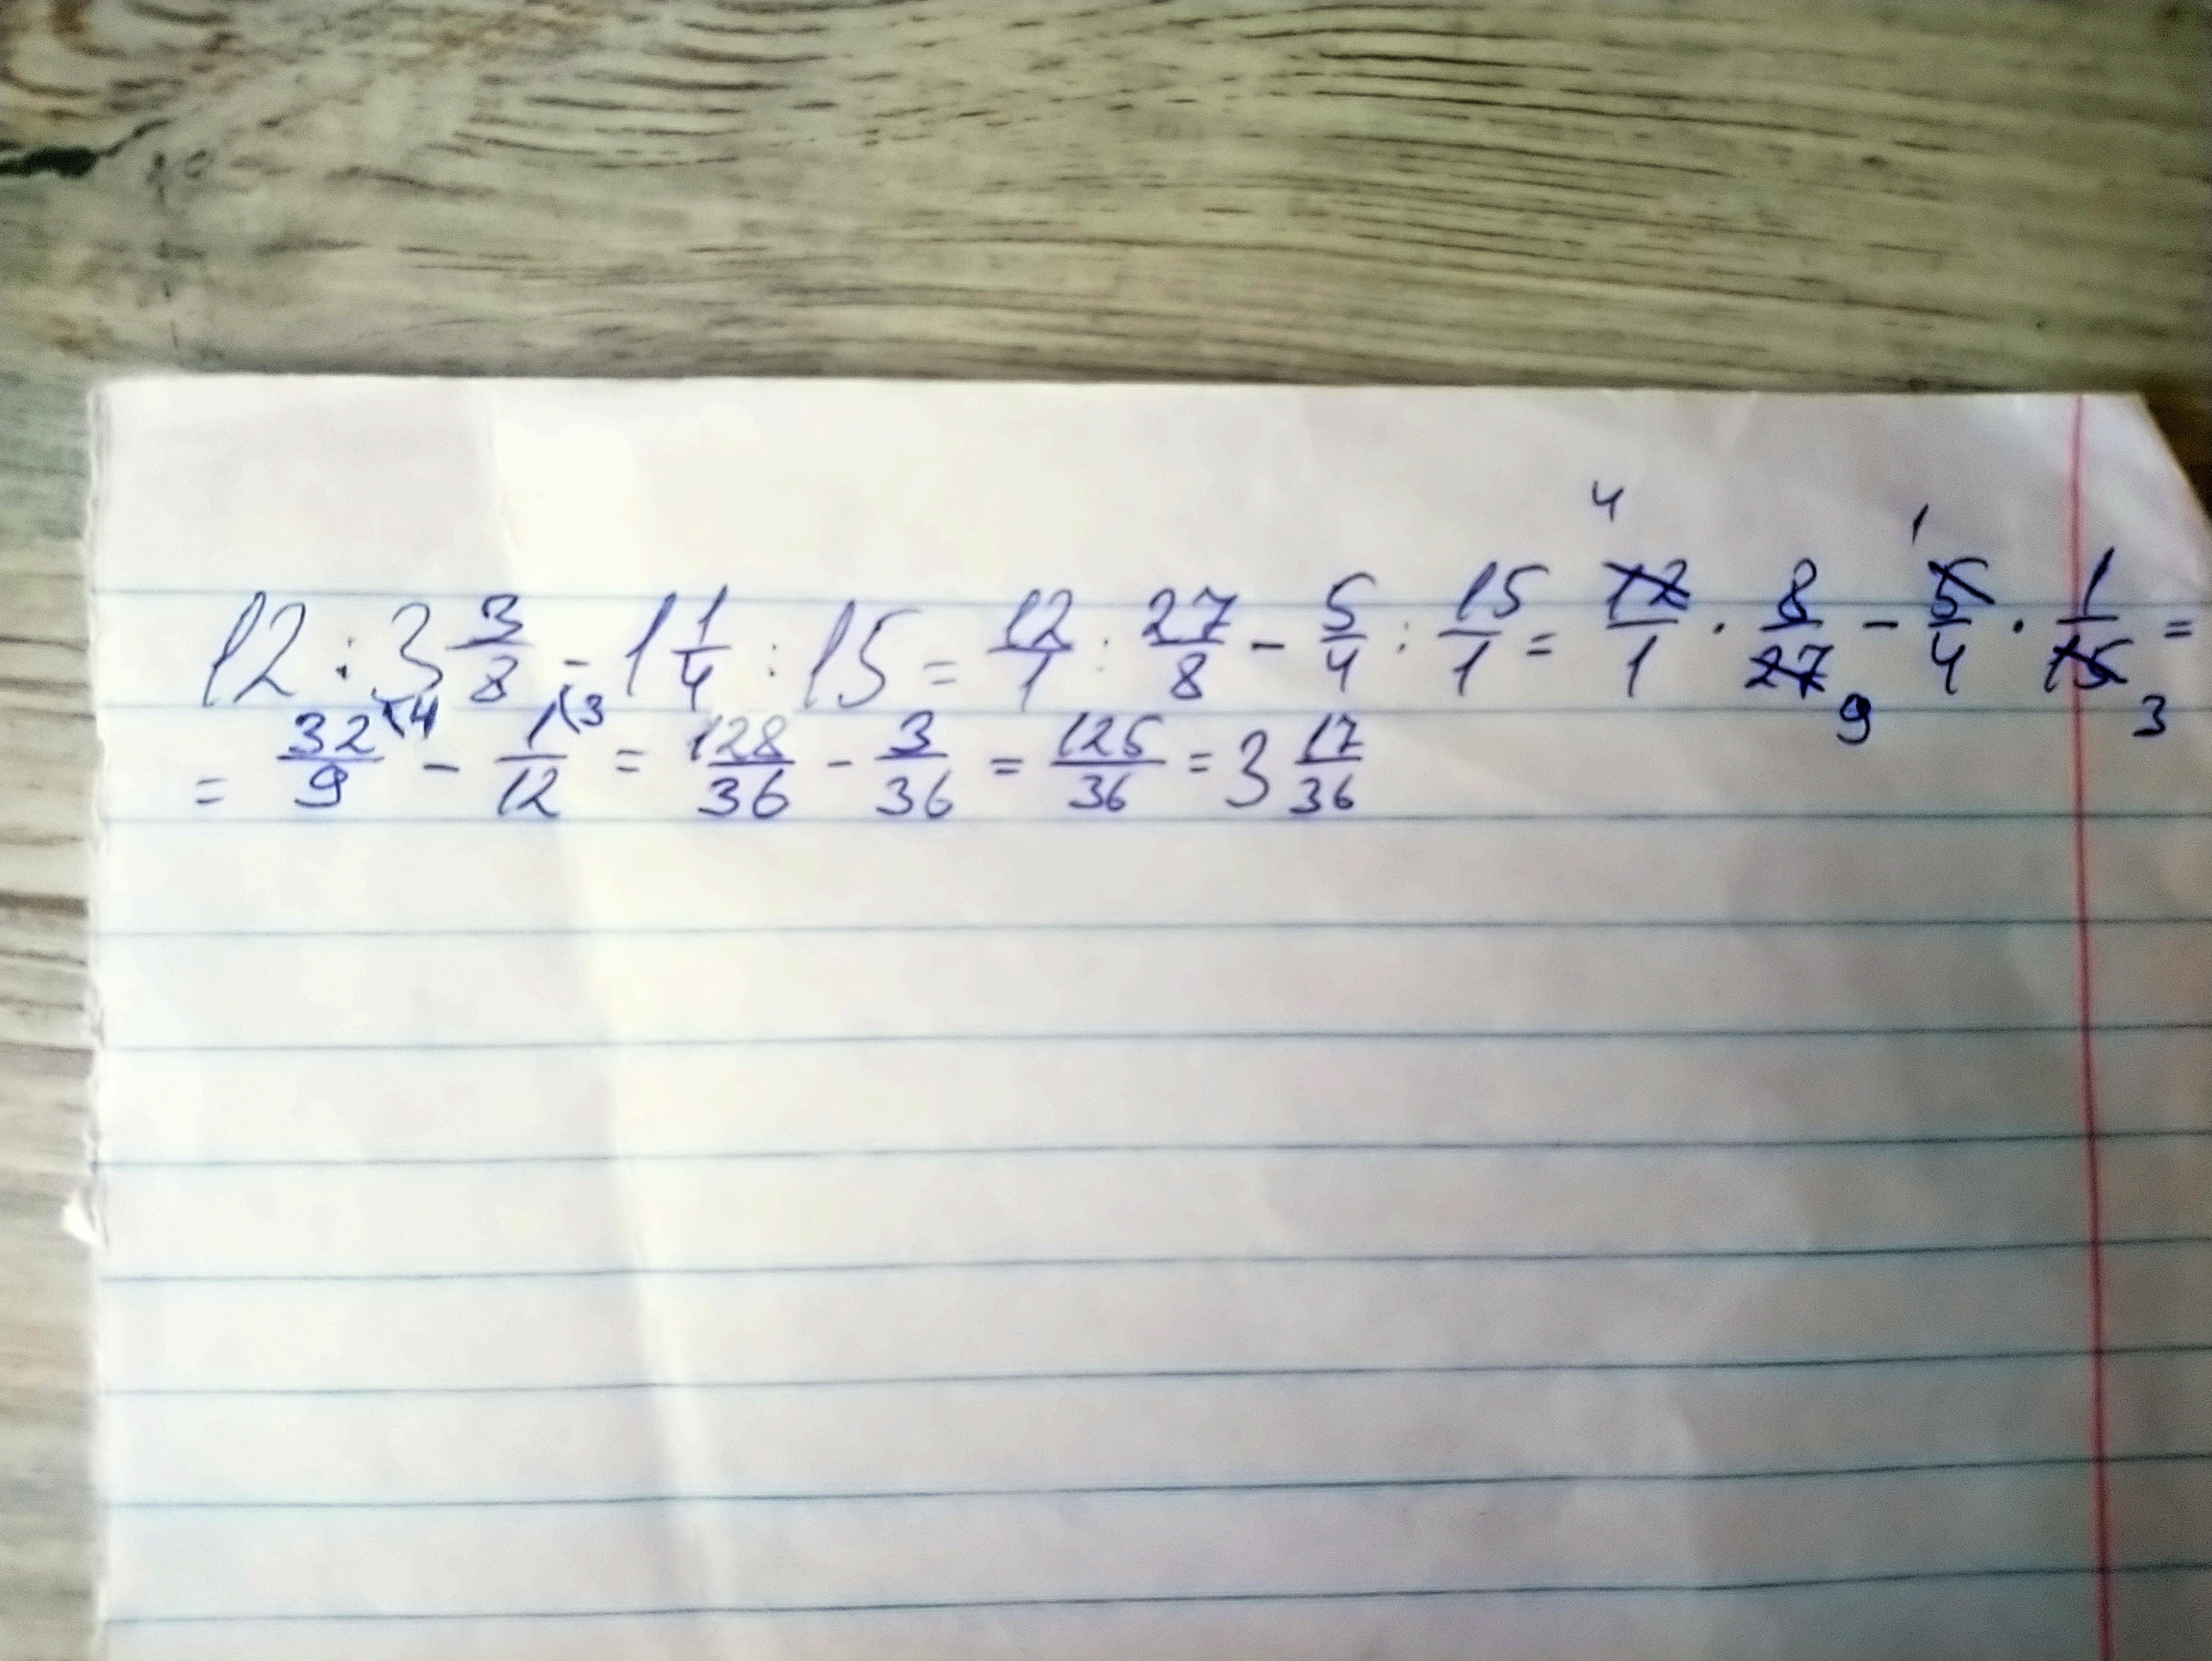 12 : 3 3/8 - 1 1/4 : 15 = 12/1 : 27/8 - 5/4 : 15/1 = 12/1 4 · 8/27 9 - 5/4 1 · 1/15 3 =
= 32/9 \4 - 1/12 \3 = 128/36 - 3/36 = 125/36 = 3 17/36